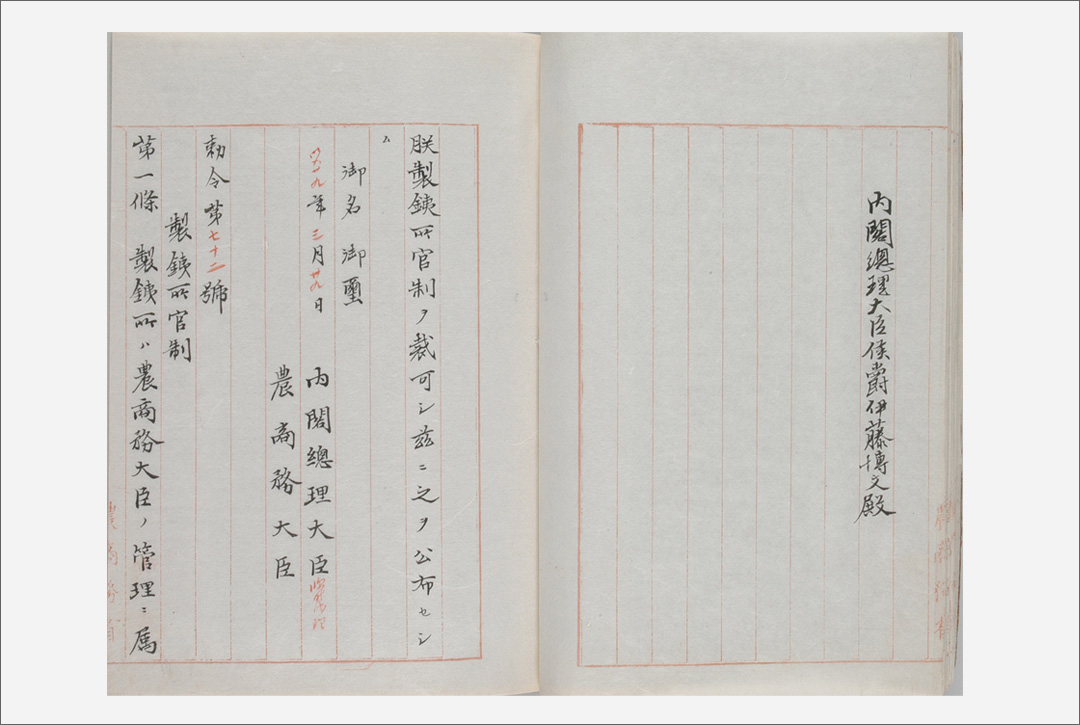 内閣總理大臣侯爵伊藤博文殿
朕製鉄所官制ヲ裁可シ茲ニ之ヲ公布セシ
ム
御名 御璽
九年三月廿九日
内閣總理大臣
農商務大臣
勅令第七十二號
製鉄所官制
第一條 製鉄所ハ農商務大臣ノ管理ニ属
農商務省